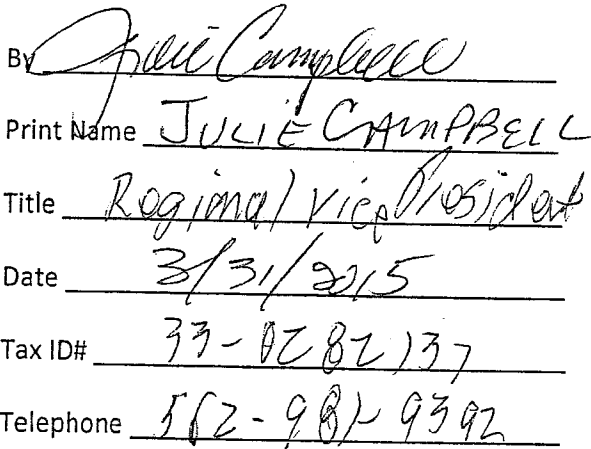 By Julie Campbell
Print Name JULIE CAMPBELL
Title Regional Vice President
Date 3/31/2015
Tax ID# 33-0282137
Telephone 562-981-9392